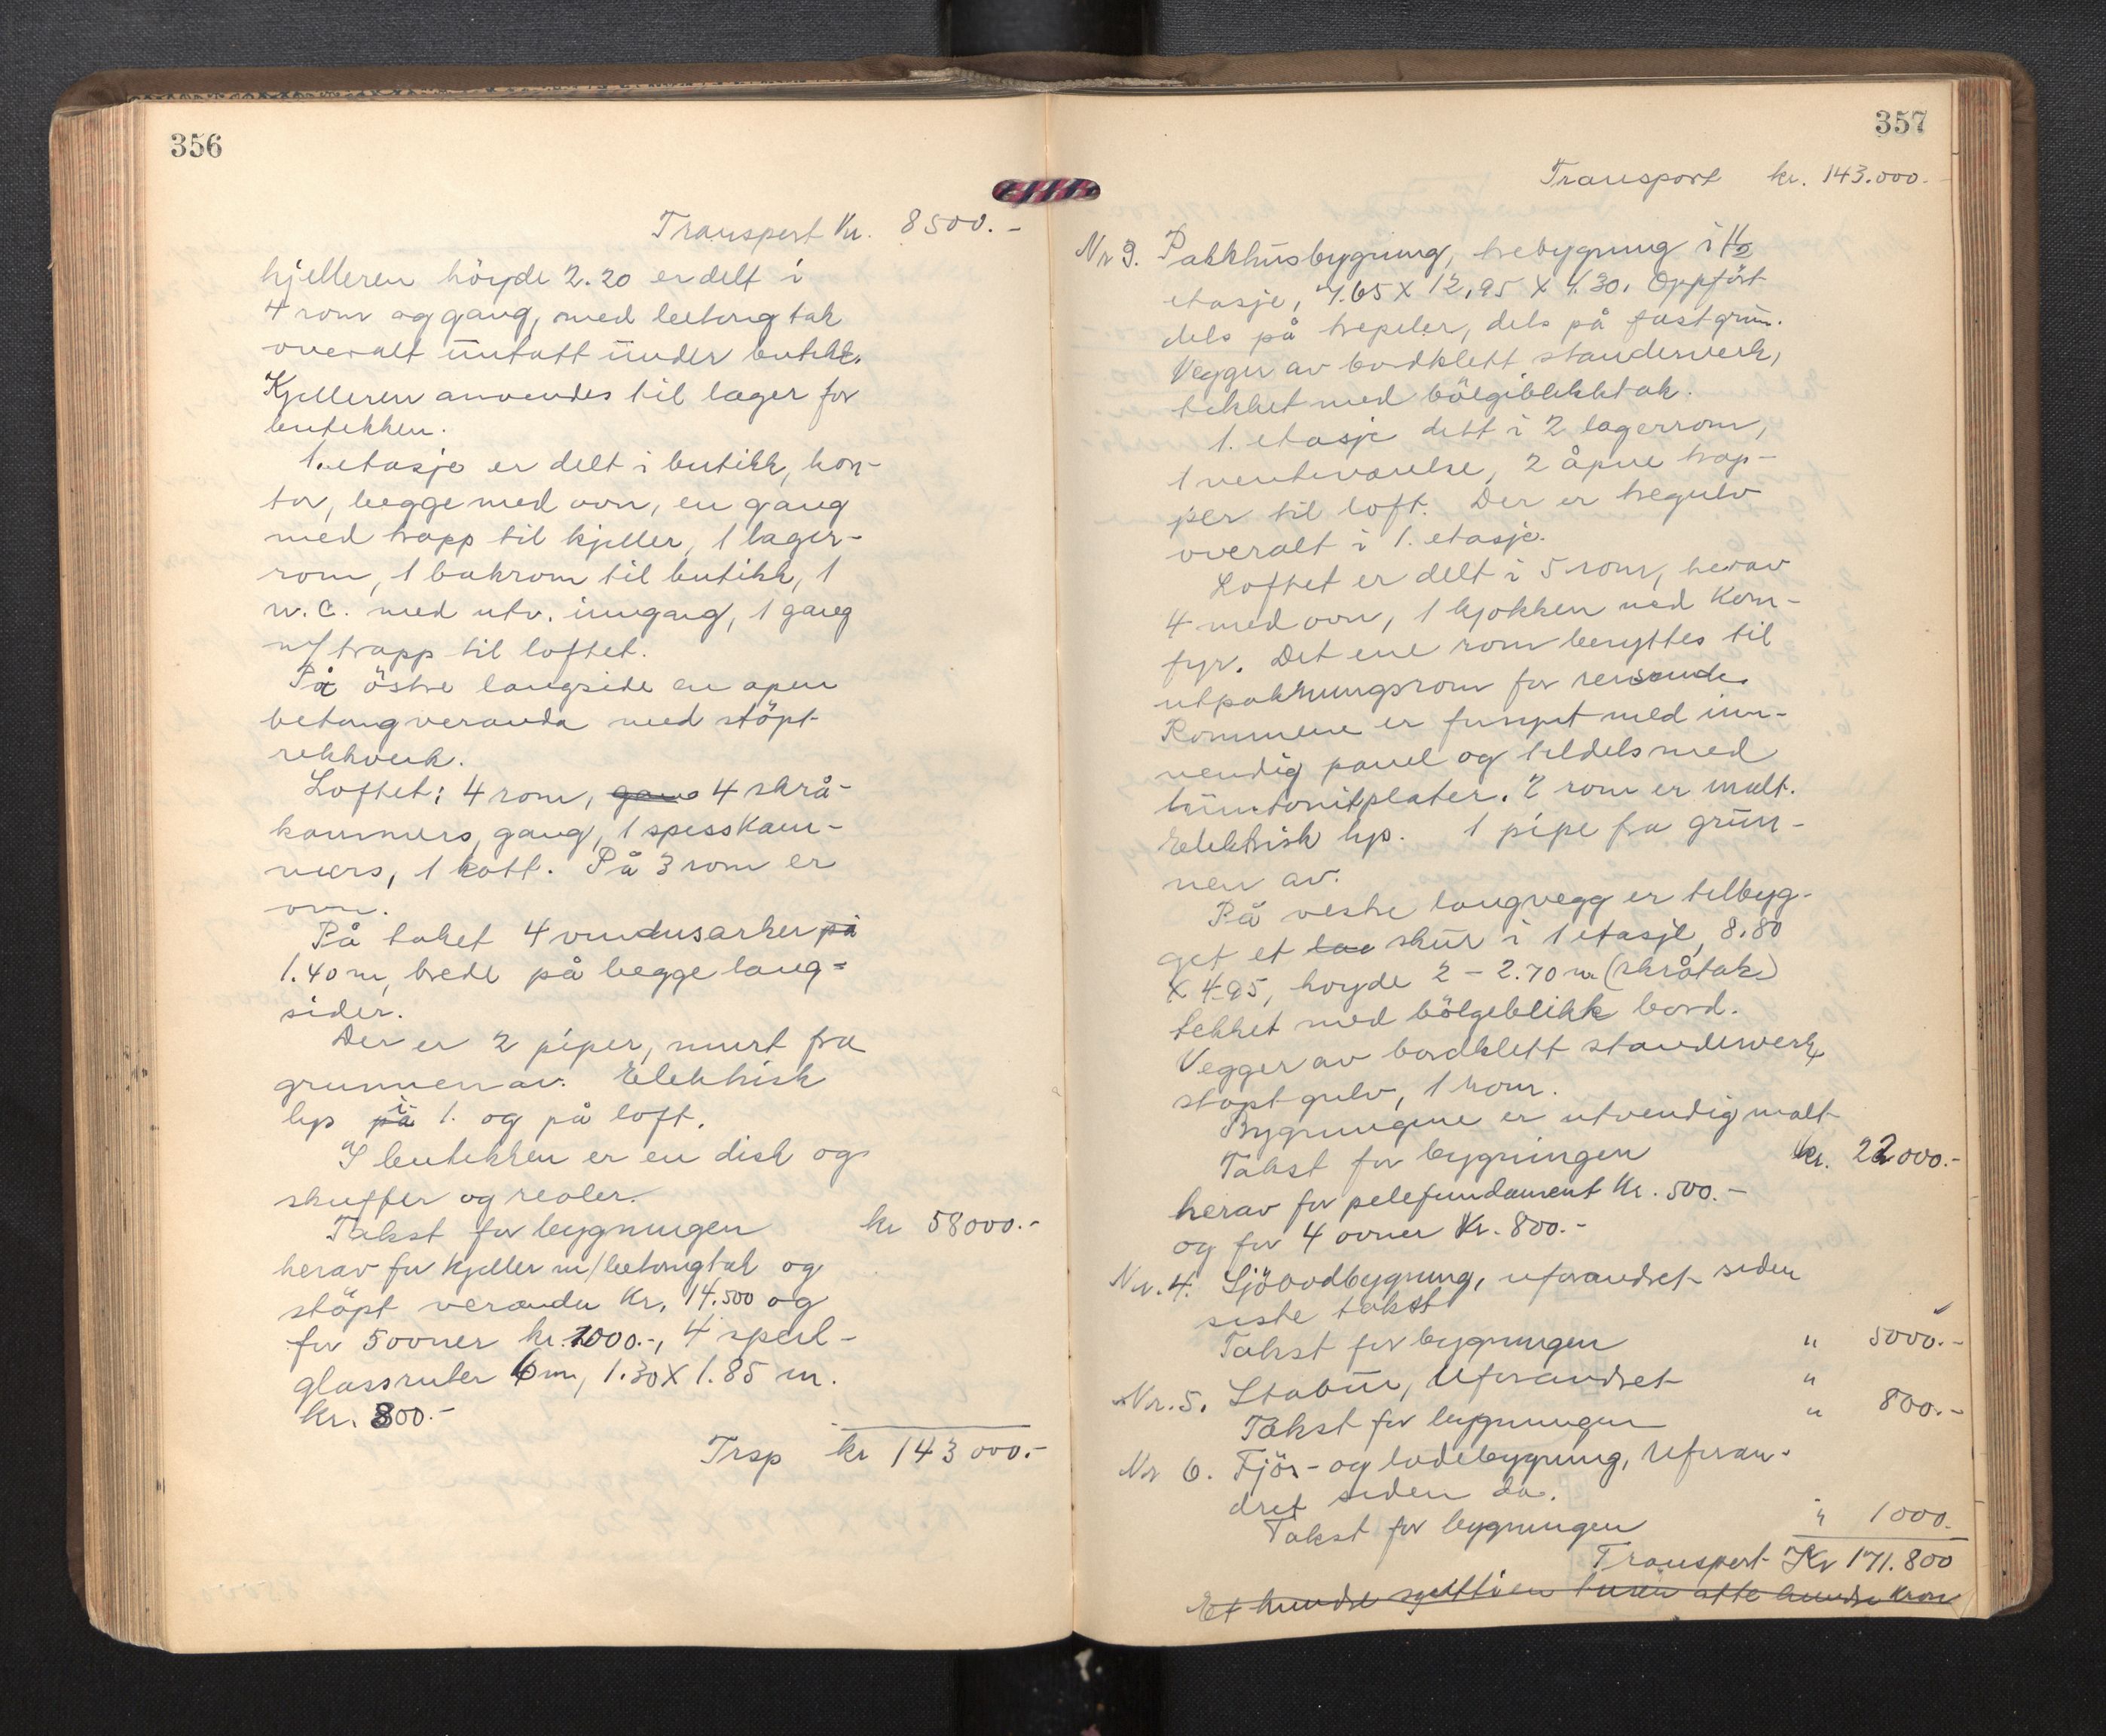 356
Transport Kr. 8500.-
kjelleren höyde 2.20 er delt i
4 rom og gang, med betong tak
overalt untatt under butikk.
Kjelleren anvendes til lager for
butikken.
1. etasje er delt i butikk, kon-
tor, begge med ovn, en gang
med trapp til kjeller, 1 lager-
rom, 1 bakrom til butikk, 1
w.c. med utv. inngang, 1 gang
m/ trapp til loftet.
På östre langside en åpen
betongveranda med stöpt
rekkverk.
Loftet: 4 rom, gang 4 skrå-
kammers, gang, 1 spisskam-
mers, 1 kott. På 3 rom er
ovn.
På taket 4 vindusarker på
1.40 m, brede på begge lang-
sider.
Der er 2 piper, murt fra
grunnen av. Elektrisk
lys på i 1. og på loft.
I butikken er en disk og
skuffer og reoler.
Takst for bygningen kr 58000.-
herav for kjeller m/betongtak og
stöpt veranda kr. 14.500 og
for 5 ovner kr. 1000.-, 4 speil-
glassruter 6 m, 1.30 X 1.85 m.
kr. 800.-
Trsp kr 143 000.-
357
Transport kr. 143.000.-
Nr 3. Pakkhusbygning, trebygning i 1 1/2
etasje, 7.65 X 12,95 X 4.30. Oppfört
dels på trepeler, dels på fast grun.
Vegger av bordklett standerverk,
tekket med bölgeblikktak.
1. etasje delt i 2 lagerrom,
1 venteværelse, 2 åpne trap-
per til loft. Der er tregulv
overalt i 1. etasje.
Loftet er delt i 5 rom, herav
4 med ovn, 1 kjøkken med Kom-
fyr. Det ene rom benyttes til
utpakningsrom for reisende.
Rommene er forsynt med inn-
vendig panel og tildels med
huntonitplater. 2 rom er malt.
Elektrisk lys. 1 pipe fra grun-
nen av.
På vestre langvegg er tilbyg-
get et skur i 1 etasje, 8.80
X 4.95, høyde 2 - 2.70 m (skråtak)
tekket med bölgeblikk bord.
Vegger av bordklett standerverk,
støpt gulv, 1 rom.
Bygningene er utvendig malt
Takst for bygningen kr. 22000.-
herav for pelefundament kr. 500.-
og for 4 ovner kr. 800.-
Nr. 4. Sjöbodbygning, uforandret siden
siste takst
Takst for bygningen " 5000.-
Nr. 5. Stabur, Uforandret "
Takst for bygningen " 800.-
Nr 6. Fjös- og lödebygning, Uforan-
dret siden do.
Takst for bygningen " 1000.
Transport Kr 171.800
Et hundre syttien tusen åtte hundre kron